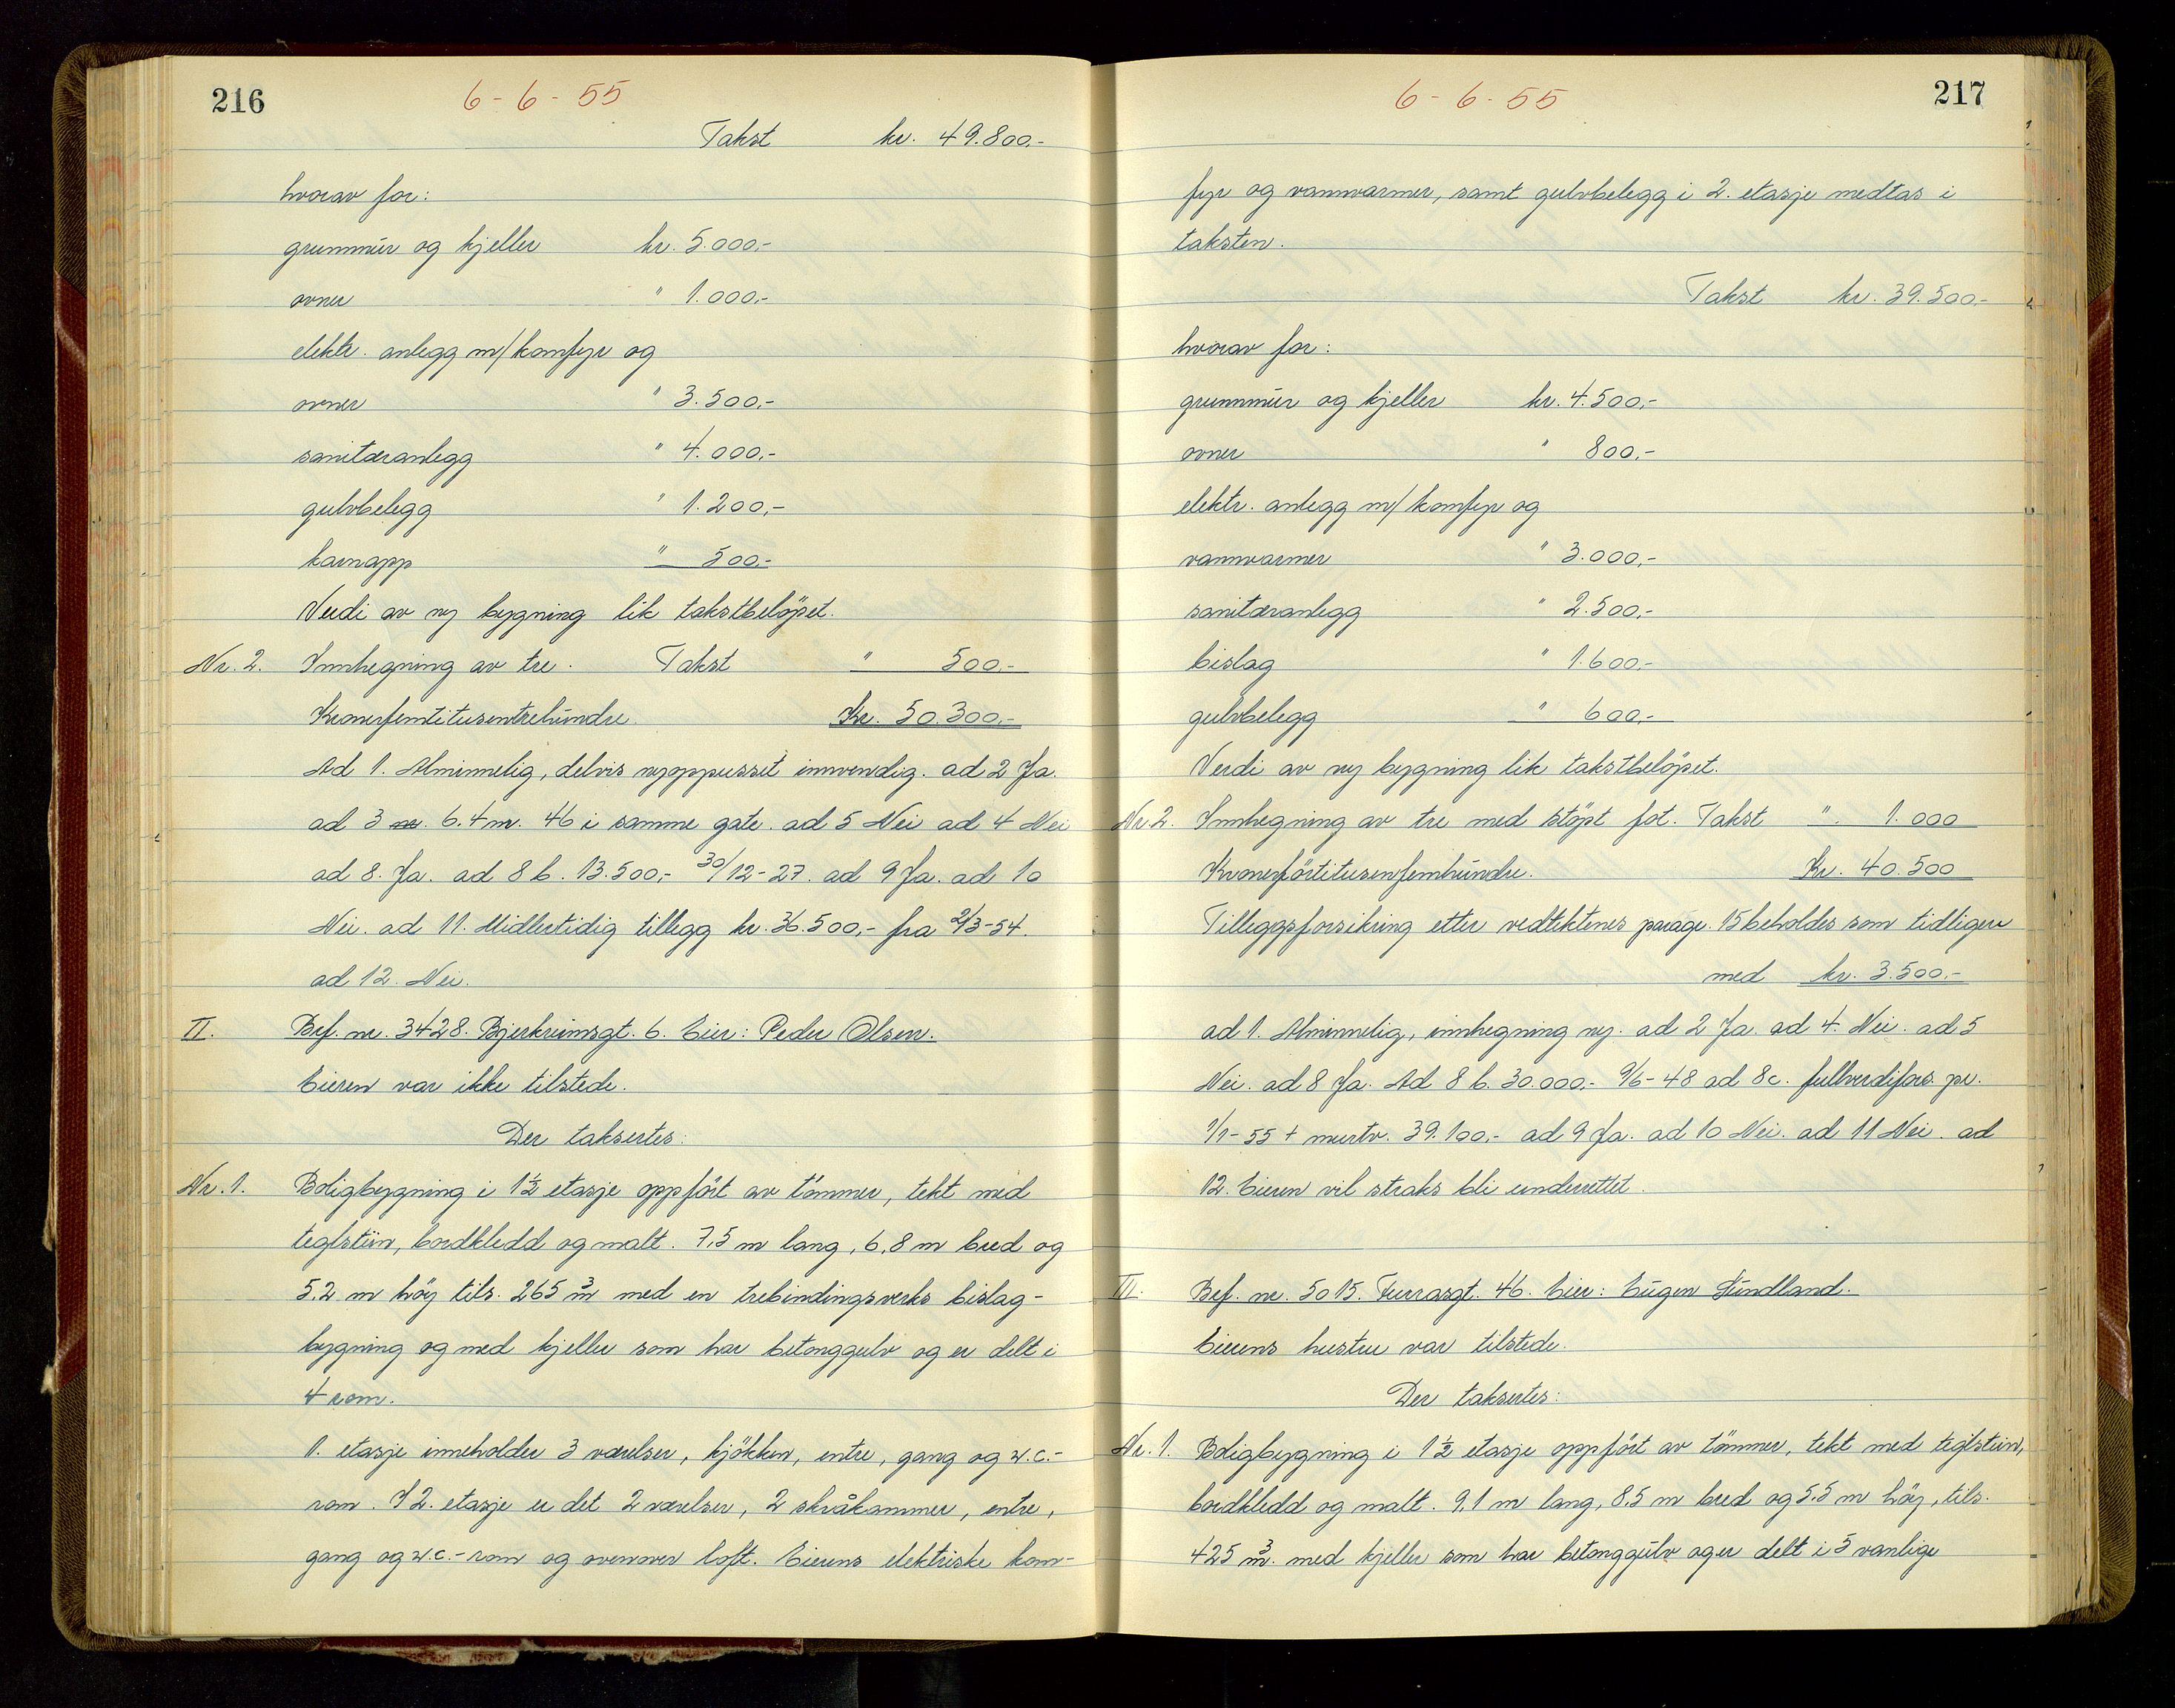 216
6-6-55
Takst kr. 49.800.-
hvorav for:
grunnmur og kjeller kr. 5.000,-
ovner " 1.000,-
elektr. anlegg m/komfyr og
ovner " 3.500,-
sanitæranlegg " 4.000,-
gulvbelegg " 1.200,-
karnapp " 500,-
Verdi av ny bygning lik takstbelöpet.
Nr. 2. Innhegning av tre. Takst " 500.-
Kronerfemtitusentrehundre. Kr. 50.300.-
Ad 1. Alminnelig, delvis nyoppusset innvendig. ad 2 Ja.
ad 3 6.4 m. 46 i samme gate. ad 5 Nei ad 4 Nei
ad 8. Ja. ad 8 b. 13.500,- 30/12-27. ad 9 Ja. ad 10
Nei. ad 11. Midlertidig tillegg kr. 36.500,- fra 2/3-54.
ad 12. Nei.
II. Bef. nr. 3428. Bjerkreimsgt. 6. Eier: Peder Olsen.
Eieren var ikke tilstede.
Der taksertes:
Nr. 1. Boligbygning i 1½ etasje oppfört av tömmer, tekt med
teglstein, bordkledd og malt. 7,5 m lang, 6,8 m bred og
5.2 m höy tils. 265 m³ med en trebindingsverks bislag-
bygning og med kjeller som har betonggulv og er delt i
4 rom.
1. etasje inneholder 3 værelser, kjökken, entre, gang og w.c.-
rom. I 2. etasje er det 2 værelser, 2 skråkammer, entre,
gang og w.c.-rom og ovenover loft. Eierens elektriske kom-
6-6-55
217
fyr og vannvarmer, samt gulvbelegg i 2. etasje medtas i
taksten.
Takst kr. 39.500.-
hvorav for:
grunnmur og kjeller kr. 4.500,-
ovner " 800,-
elektr. anlegg m/komfyr og
vannvarmer " 3.000,-
sanitæranlegg " 2.500,-
bislag " 1.600,-
gulvbelegg " 600,-
Verdi av ny bygning lik takstbelöpet.
Nr. 2. Innhegning av tre med stöpt fot. Takst " 1.000
Kronerförtitusenfemhundre. Kr. 40.500
Tilleggsforsikring etter vedtektenes paragr. 15 beholdes som tidligere
med kr. 3.500.-
ad 1. Alminnelig, innhegning ny. ad 2 Ja. ad 4. Nei. ad 5
Nei. ad 8 Ja. Ad 8 b. 30.000.- 9/6-48 ad 8c. fullverdifors. pr.
1/1-55 + merv. 39.100.- ad 9 Ja. ad 10 Nei. ad 11 Nei. ad
12. Eieren vil straks bli underrettet.
III. Bef. nr. 5015. Furrasgt. 46. Eier: Eugen Sundland.
Eierens hustru var tilstede.
Der taksertes:
Nr. 1. Boligbygning i 1½ etasje oppfört av tömmer, tekt med teglstein,
bordkledd og malt. 9,1 m lang, 8,5 m bred og 5,5 m höy, tils.
425 m³. med kjeller som har betonggulv og er delt i 5 vanlige